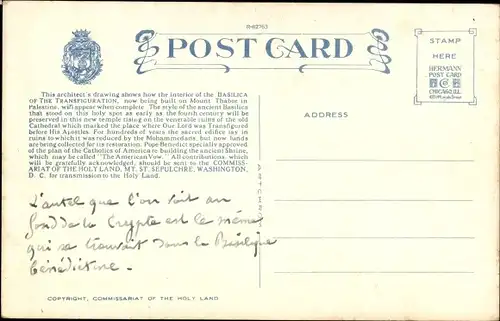 R-62763
POST CARD
STAMP
HERE
HERMANN
POST CARD
CHICAGO, ILL.
This architect's drawing shows how the interior of the BASILICA
OF THE TRANSFIGURATION, now being built on Mount Thabor in
Palestine, will appear when complete. The style of the ancient Basilica
that stood on this holy spot as early as the fourth century will be
preserved in this new temple rising on the venerable ruins of the old
Cathedral which marked the place where Our Lord was Transfigured
before His Apostles. For hundreds of years the sacred edifice lay in
ruins to which it was reduced by the Mohammedans, but now funds
are being collected for its restoration. Pope Benedict specially approved
of the plan of the Catholics of America re-building the ancient Shrine,
which may be called "The American Vow." All contributions, which
will be gratefully acknowledged, should be sent to the COMMISS-
ARIAT OF THE HOLY LAND, MT. ST. SEPULCHRE, WASHINGTON,
D. C. for transmission to the Holy Land.
ADDRESS
L'autel que l'on voit au
fond de la Crypte est le même
qui se trouvait dans la Basilique
bénédictine.
COPYRIGHT, COMMISSARIAT OF THE HOLY LAND